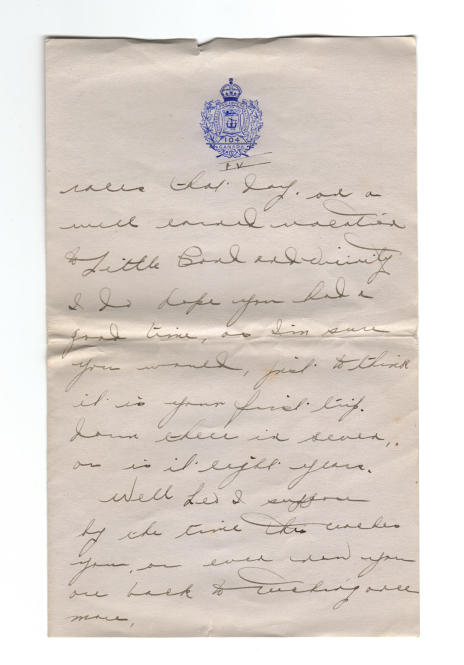 104
CANADA
IV
races that day. on a
well earned vacation
to Little and vicinity
I do hope you had a
good time, as I'm sure
you would, just to think
it is your first trip.
down there in seven,
or is it eight years.
Well Les I suppose
by the time this reaches
you, or even when you
are back to once
more.